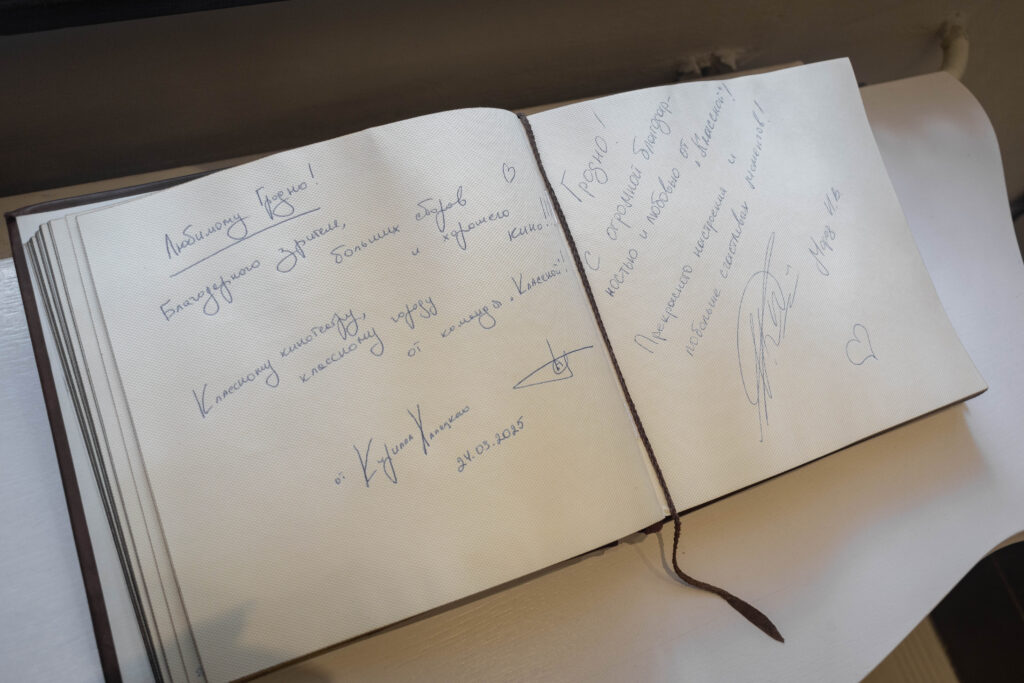 Любимому Гродно!
Благодарного зрителя,
больших сборов
и хорошего
кино!!!
Классному кинотеатру,
классному городу
от команды „Классной"!
от Кирилла Халецкого
24.03.2025
Гродно!
С огромной благодар-
ностью и любовью от „Классной"!
Прекрасного настроения и
побольше счастливых моментов!